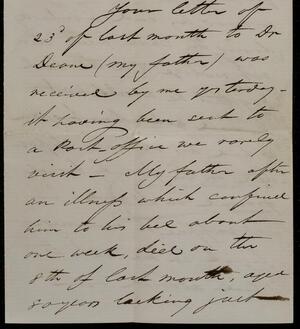 Your letter of
23d of last month to Dr
Deane (my father) was
received by me yesterday -
it having been sent to
a Post-office we rarely
visit - My father after
an illness which confined
him to his bed about
one week, died on the
8th of last month, aged
80 years lacking just